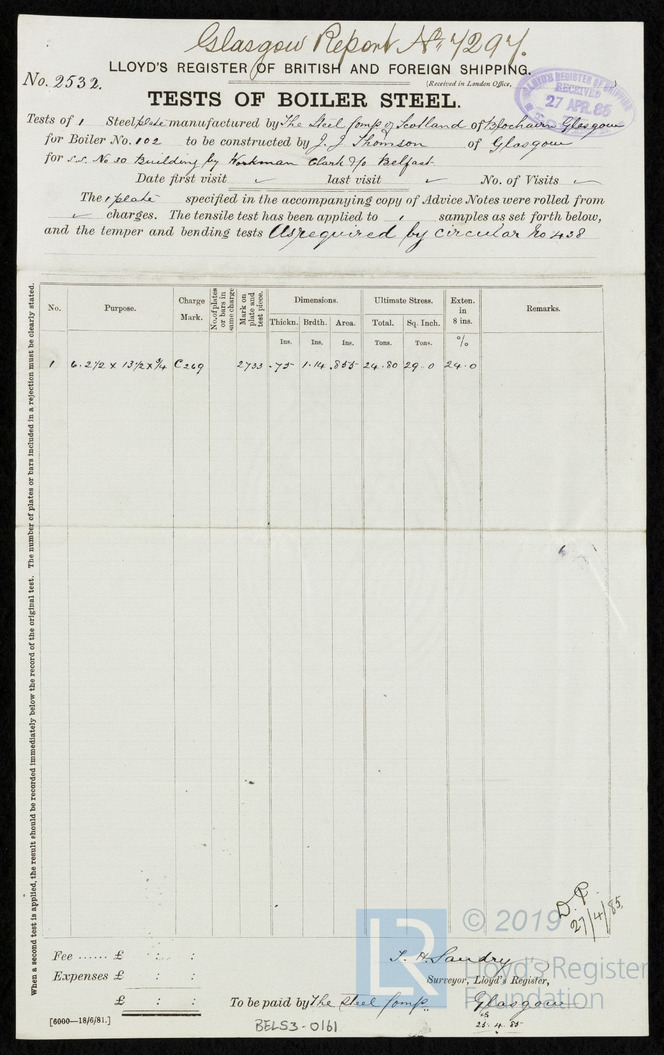 Glasgow Report No 7297.
LLOYD'S REGISTER OF BRITISH AND FOREIGN SHIPPING.
No. 2532.
(Received in London Office, )
LLOYD'S REGISTER OF SHIPPING
RECEIVED
27 APR. 85
TESTS OF BOILER STEEL.
Tests of 1 Steel plate manufactured by The Steel Comp of Scotland of Blochairn Glasgow
for Boiler No. 102 to be constructed by J. J Thomson of Glasgow
for s.s. No 30 Building by Workman Clark & Co Belfast
Date first visit ✓ last visit ✓ No. of Visits ✓
The 1 plate specified in the accompanying copy of Advice Notes were rolled from
✓ charges. The tensile test has been applied to 1 samples as set forth below,
and the temper and bending tests As required by circular No 438
No. Purpose. Charge Mark. No. of plates or bars in same charge Mark on plate and test piece. Dimensions. Ultimate Stress. Exten. in 8 ins. Remarks.
Thickn. Brdth. Area. Total. Sq. Inch.
Ins. Ins. Ins. Tons. Tons. %
1 6. 2 1/2 x 13 1/2 x 3/4 C269 2733 .75 1.14 .855 24.80 29.0 24.0
When a second test is applied, the result should be recorded immediately below the record of the original test. The number of plates or bars included in a rejection must be clearly stated.
D.P.
27/4/85.
LR © 2019
Lloyd's Register
Foundation
Fee ...... £ : :
Expenses £ : :
£ : :
Surveyor, Lloyd's Register,
To be paid by The Steel Comp. Glasgow
25. 4. 85
[6000—18/6/81.]
BELS3-0161